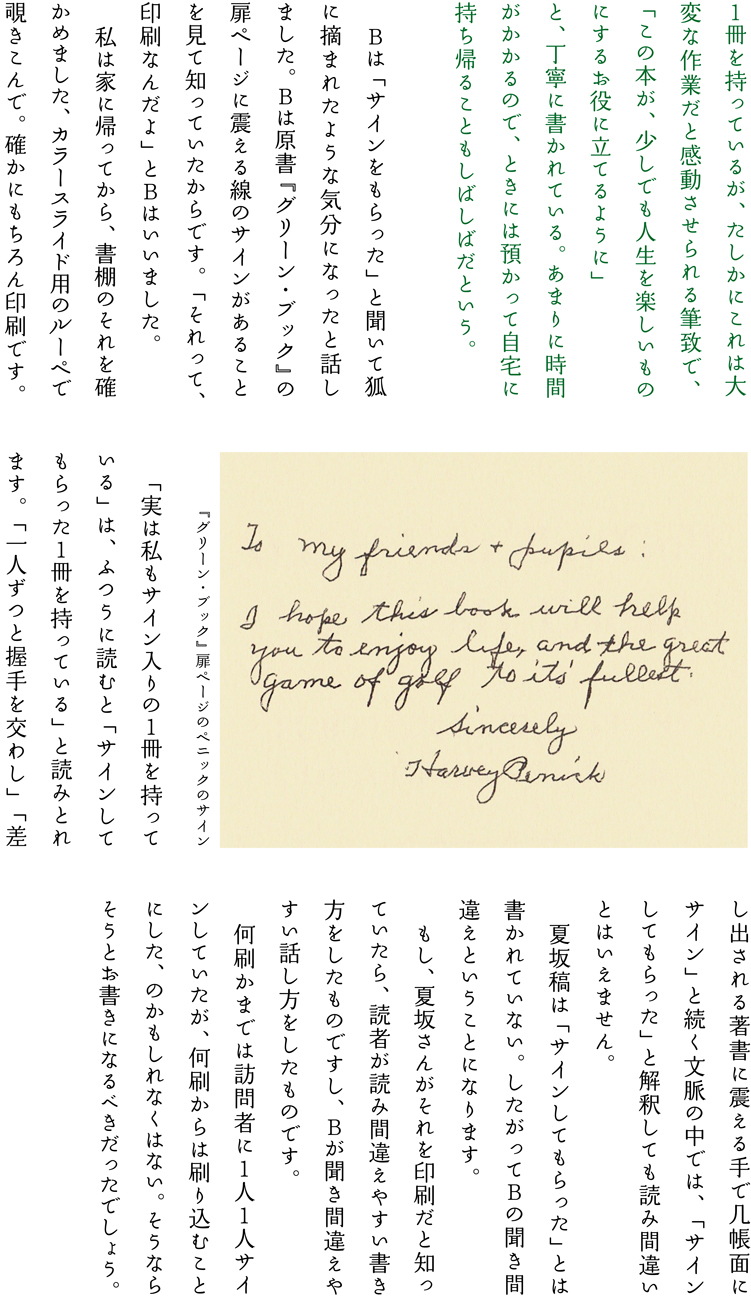 1冊を持っているが、たしかにこれは大
変な作業だと感動させられる筆致で、
「この本が、少しでも人生を楽しいもの
にするお役に立てるように」
と、丁寧に書かれている。あまりに時間
がかかるので、ときには預かって自宅に
持ち帰ることもしばしばだという。
Bは「サインをもらった」と聞いて狐
に摘まれたような気分になったと話し
ました。Bは原書『グリーン・ブック』の
扉ページに震える線のサインがあること
を見て知っていたからです。「それって、
印刷なんだよ」とBはいいました。
私は家に帰ってから、書棚のそれを確
かめました、カラースライド用のルーペで
覗きこんで。確かにもちろん印刷です。
To my friends + pupils :
I hope this book will help
you to enjoy life, and the great
game of golf to its' fullest.
Sincerely
Harvey Penick
『グリーン・ブック』扉ページのペニックのサイン
「実は私もサイン入りの1冊を持って
いる」は、ふつうに読むと「サインして
もらった1冊を持っている」と読みとれ
ます。「一人ずつと握手を交わし」「差
し出される著書に震える手で几帳面に
サイン」と続く文脈の中では、「サイン
してもらった」と解釈しても読み間違い
とはいえません。
夏坂稿は「サインしてもらった」とは
書かれていない。したがってBの聞き間
違えということになります。
もし、夏坂さんがそれを印刷だと知っ
ていたら、読者が読み間違えやすい書き
方をしたものですし、Bが聞き間違えや
すい話し方をしたものです。
何刷かまでは訪問者に1人1人サイ
ンしていたが、何刷からは刷り込むこと
にした、のかもしれなくはない。そうなら
そうとお書きになるべきだったでしょう。